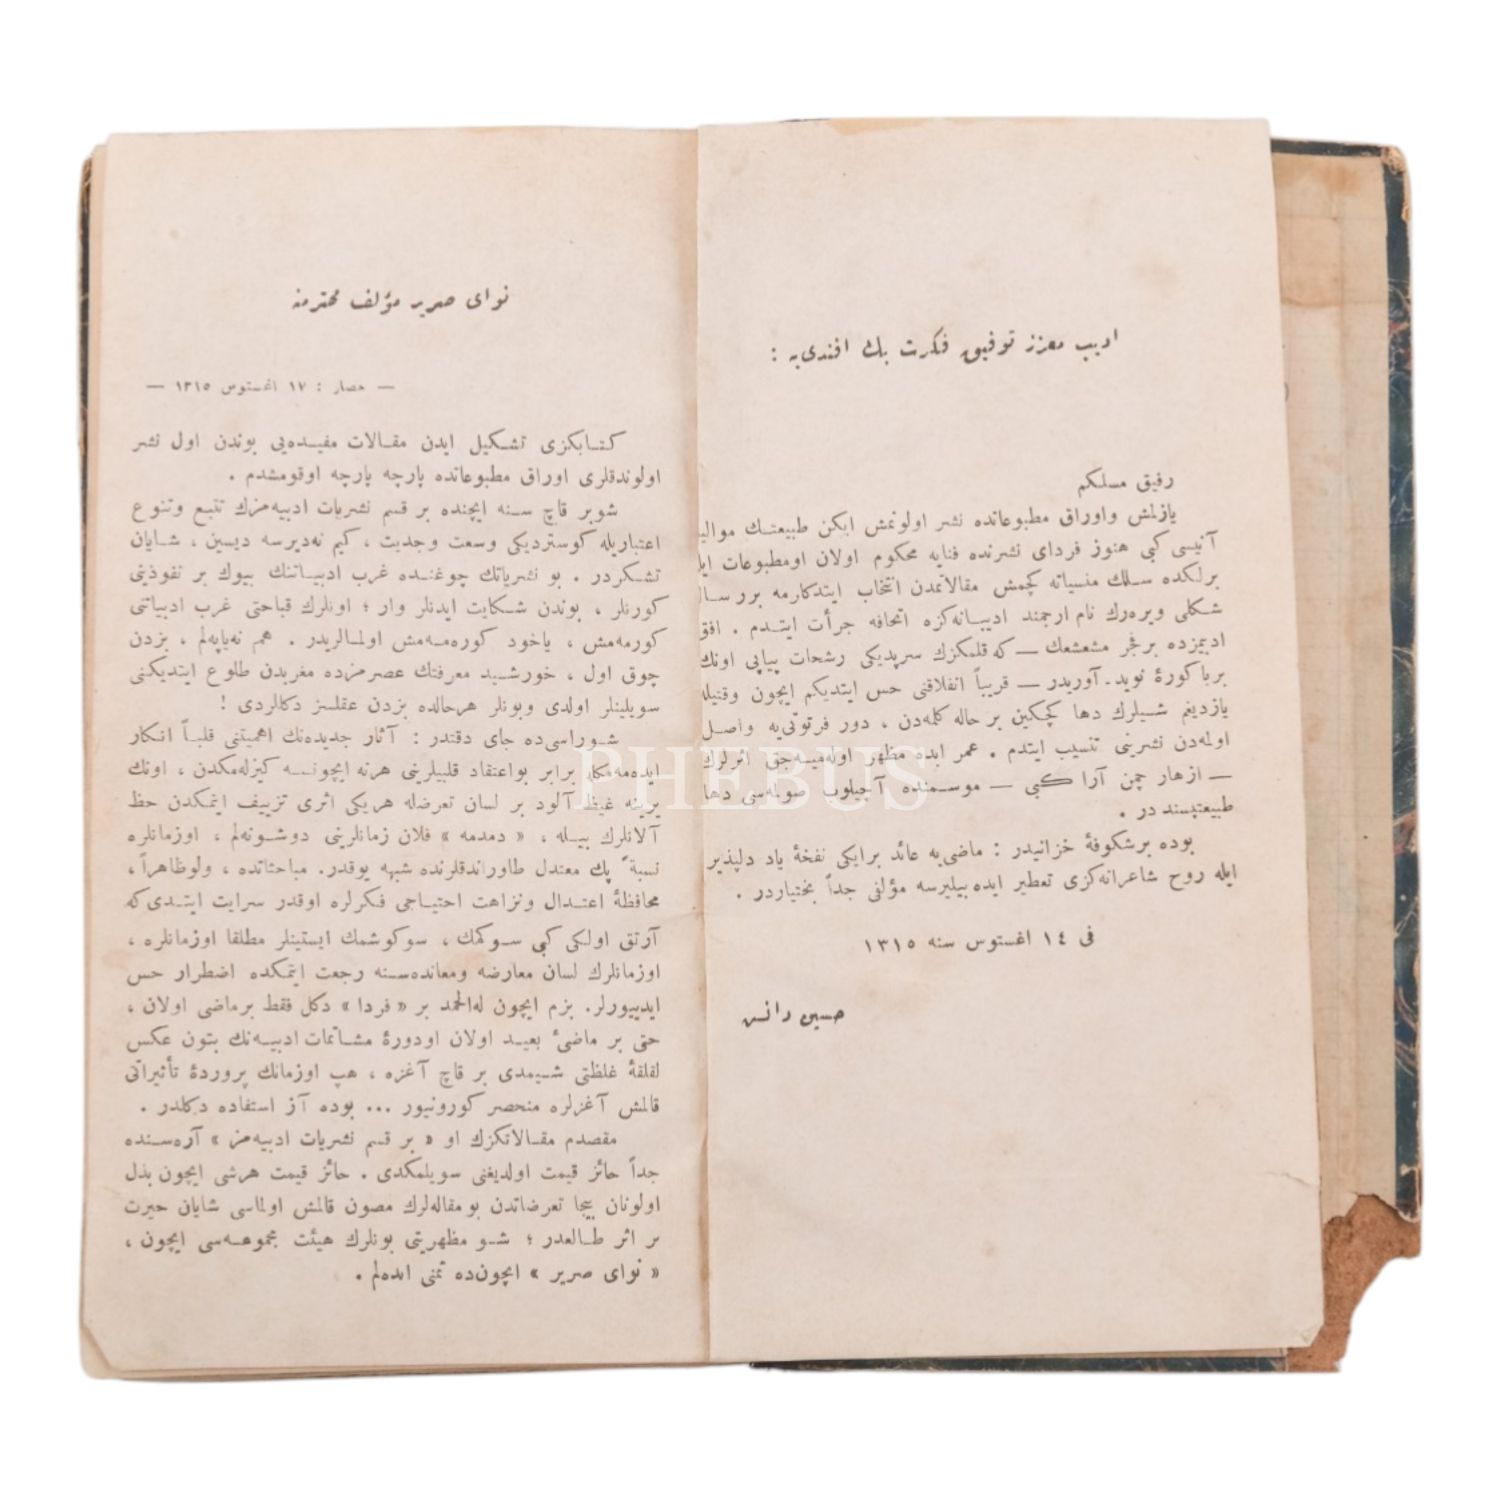 ادیب معزز توفیق فکرت بك افندی‌یه :
رفیق مسلکم
یازلمش واوراق مطبوعاتده نشر اولونمش ایکن طبیعتـك
آنیسی کبی هنوز فردای نشرنده فنایه محکوم اولان اومطبوعات
برلکده سـلك منسیاته کچمش مقالاتمدن انتخاب ایتدکلرمه بر
شکلی ویره‌رك نام ارجمند ادیبـانه‌کزه اتحافه جرأت ایتـدم . افق
ادبیمزده بر فجر مشعشعك — که قلمکزك سرپدیکی رشحات پیاپی اونك
برباکورۀ نوید ـ آوریدر — قریباً انفلاقنی حس ایتدیکم ایچون وقتیله
یازدیغم شـیلرك دها کچکین بر حاله کلمه‌دن ، دور فرتوتی‌یه واصـل
اولمه‌دن نشرینی تنسیب ایتدم . عمر ابده مظهر اوله‌میـه‌جق اثرلرك
— ازهار چمن آرا کبی — موسـمنده آچیلوب صولمه‌سی دها
طبیعتپسند در .
بوده برشکوفۀ خزانیدر : ماضی‌یه عائد بر ایکی نفخۀ یاد دلپذیر
ایله روح شاعرانه‌کزی تعطیر ایده بیلیرسه مؤلفی جداً بختیاردر .
فی ١٤ اغستوس سنه ١٣١٥
حسین دانش
PHEBUS
نوای صریر مؤلف محترمنه
— حصار : ١٧ اغستوس ١٣١٥ —
کتـابکزی تشـکیل ایدن مقـالات مفیـده‌یی بوندن اول نشر
اولوندقلری اوراق مطبوعاتده پارچه پارچه اوقومشدم .
شوبر قاچ سـنه ایچنده بر قسم نشریات ادبیه‌مزك تتبع وتنوع
اعتباریله کوستردیکی وسعت وجدیت ، کیم نه‌دیرسه دیسین ، شـایان
تشـکردر . بو نشریاتك چوغنـده غرب ادبیـاتنك بیوك بر نفوذینی
کورنلر ، بوندن شـکایت ایدنلر وار ؛ اونلرك قباحتی غرب ادبیاتنی
کورمه‌مش ، یاخود کوره‌مـه‌مش اولمـالریدر . هم نه‌یاپه‌لم ، بزدن
چوق اول ، خورشـید معرفتك عصرمزده مغربدن طلوع ایتدیکنی
سویلینلر اولدی وبونلر هرحالده بزدن عقلسز دکللردی !
شـوراسی‌ده جای دقتدر : آثار جدیده‌نك اهمیتنی قلبـاً انکار
ایده‌مه‌مکله برابر بو اعتقاد قلبیلرینی هرنه ایچونسـه کیزله‌مکدن ، اونك
یرینه غیظ آلود بر لسان تعرضله هر یکی اثری تزییف ایتمکدن حظ
آلانلرك بیـله ، « دمدمه » فلان زمانلرینی دوشـونه‌لم ، اوزمانلره
نسبةً پك معتدل طاوراندقلرنده شبهه یوقدر. مباحثاتده ، ولوظاهراً ،
محافظۀ اعتـدال ونزاهت احتیـاجی فکرلره اوقدر سرایت ایتـدی‌که
آرتق اولکی کبی سـوکمك ، سوکوشمك ایستینلر مطلقا اوزمانلره ،
اوزمانلرك لسان معارضه ومعانده‌سـنه رجعت ایتمکده اضطرار حس
ایدییورلر. بزم ایچون له‌الحمد بر « فردا » دکل فقط بر ماضی اولان ،
حتی بر ماضیٔ بعیـد اولان اودورۀ مشـاتمات ادبیـه‌نك بتون عکس
لقلقۀ غلظتی شـیمدی بر قاچ آغزه ، هپ اوزمانك پروردۀ تأثیراتی
قالمش آغزلره منحصر کورونیور ... بوده آز استفاده دکلدر .
مقصدم مقـالاتکزك او « بر قسم نشریات ادبیه‌مز » آره‌سـنده
جداً حائز قیمت اولدیغنی سویلمکدی . حائز قیمت هرشی ایچون بذل
اولونان بیجا تعرضاتدن بو مقاله‌لرك مصون قالمش اولماسی شایان حیرت
بر اثر طـالعدر ؛ شـو مظهریتی بونلرك هیئت مجموعـه‌سی ایچون ،
« نوای صریر » ایچون‌ده تمنی ایده‌لم .